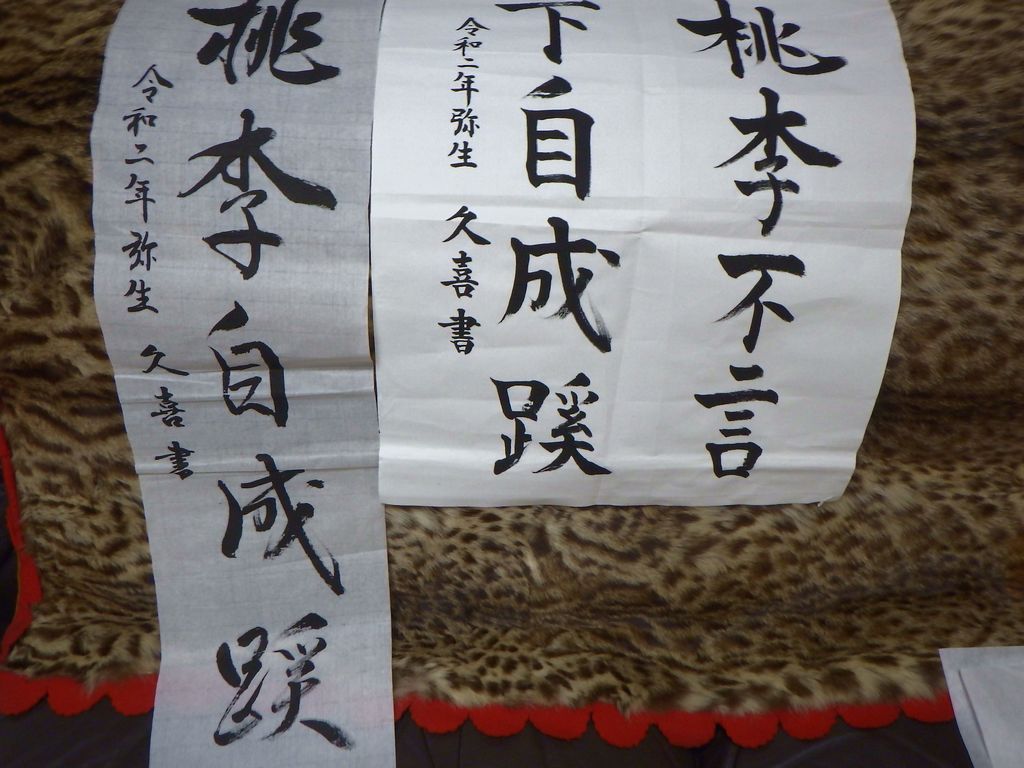 桃李不言
下自成蹊
令和二年弥生 久喜書
桃李自成蹊
令和二年弥生 久喜書